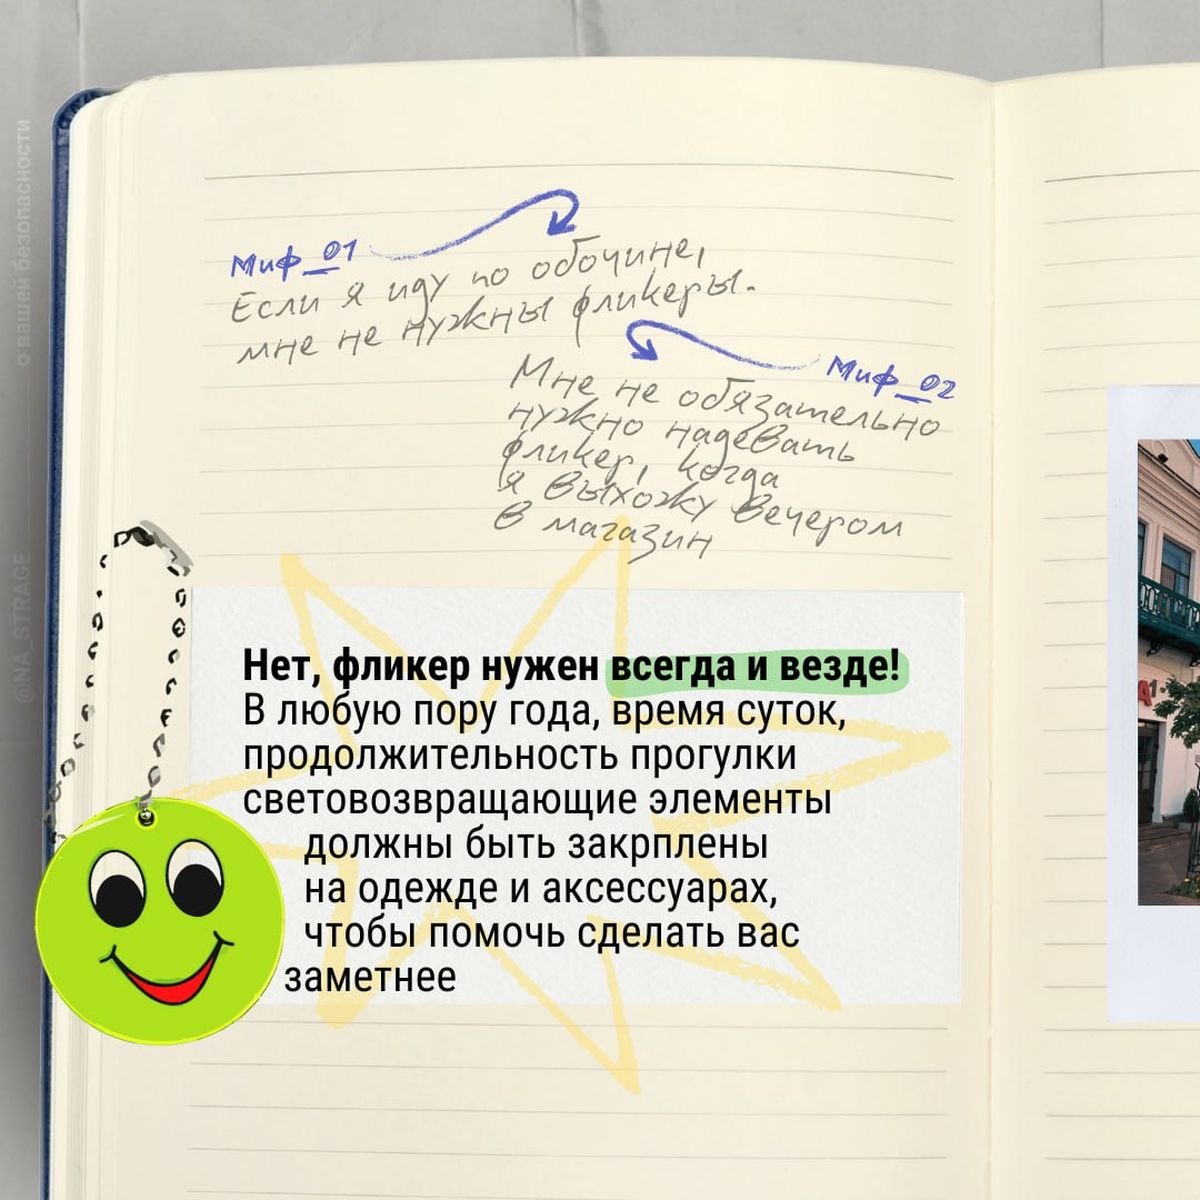 Миф_01
Если я иду по обочине,
мне не нужны фликеры.
Миф_02
Мне не обязательно
нужно надевать
фликер, когда
я выхожу вечером
в магазин
Нет, фликер нужен всегда и везде!
В любую пору года, время суток,
продолжительность прогулки
световозвращающие элементы
должны быть закрплены
на одежде и аксессуарах,
чтобы помочь сделать вас
заметнее
о вашей безопасности
@NA_STRAGE
A1